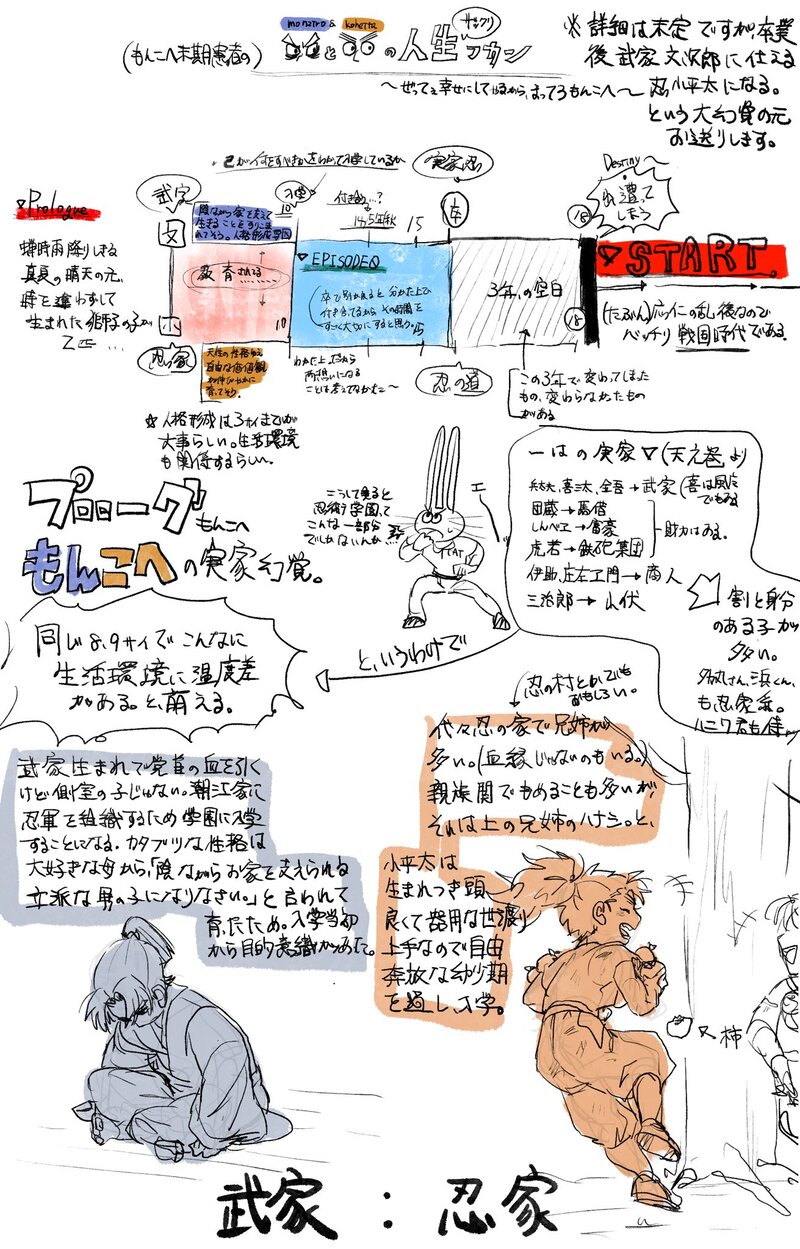 monziro & kohetta
サックリ
(もんこへ末期患者の)
と の人生フカン
〜ぜってぇ幸せにしてやるから、まってろもんこへ〜
※詳細は未定ですが、卒業
後武家文次郎に仕える
忍小平太になる。
という大幻覚の元
お送りします。
▽Prologue
蝉時雨降りしきる
真夏の晴天の元、
時を違わずして
生まれた獅子の子が
2匹…
武家
文
小
忍の家
陰ながら家を支えて
教育される
10
10
天性の性格ゆえ
自由な価値観
入学
己が何をすべきかをわかって入学しているか
付き始め…?
14,5年秋
15
▽EPISODE0
卒で別かれると分かた上で
付き合ってるから その時間を
すごく大切にすると思ふ。
15
わかた上でだから
両想いになる
ことは考えてなかた〜
実家忍
卒
3年の空白
忍の道
この3年で変わってしまった
もの、変わらなかたもの
がある
18
18
Destiny〜
出遭って
しまう
▽START.
(たぶん)応仁の乱後なので
バッチリ戦国時代である。
☆人格形成は3才までが
大事らしい。生活環境
も関係するらしい。
プロローグ
もんこへ
もんこへの実家幻覚。
こうして見ると
忍術学園って
こんな一部分
でしかないんか…
エーッ
一はの実家▽(天之巻より
兵太夫、喜三太、金吾→武家(喜は風魔
でもある
団蔵→馬借
しんべヱ→富豪
財力はある。
虎若→鉄砲集団
伊助、庄左ヱ門→商人
三治郎→山伏
割と身分
のある子が
多い。
浜くん、
も、忍家系。
ハニワ君も侍ッ
同じ8,9才でこんなに
生活環境に温度差
がある。と、萌える。
と、いうわけで
忍の村とかでも
おもしろい。
武家生まれで党首の血を引く
けど側室の子じゃない。潮江家に
忍軍を組織するため学園に入学
することになる。カタブツな性格は
大好きな母から、「陰ながらお家を支えられる
立派な男の子になりなさい。」と言われて
育たため。入学当初
から目的意識があった。
代々忍の家で兄姉が
多い。(血縁じゃないのもいる。)
親族間でもめることも多いが、
それは上の兄姉のハナシ。と、
小平太は
生まれつき頭
良くて器用な世渡り
上手なので自由
奔放な幼少期
を過し入学。
柿
武家 : 忍家